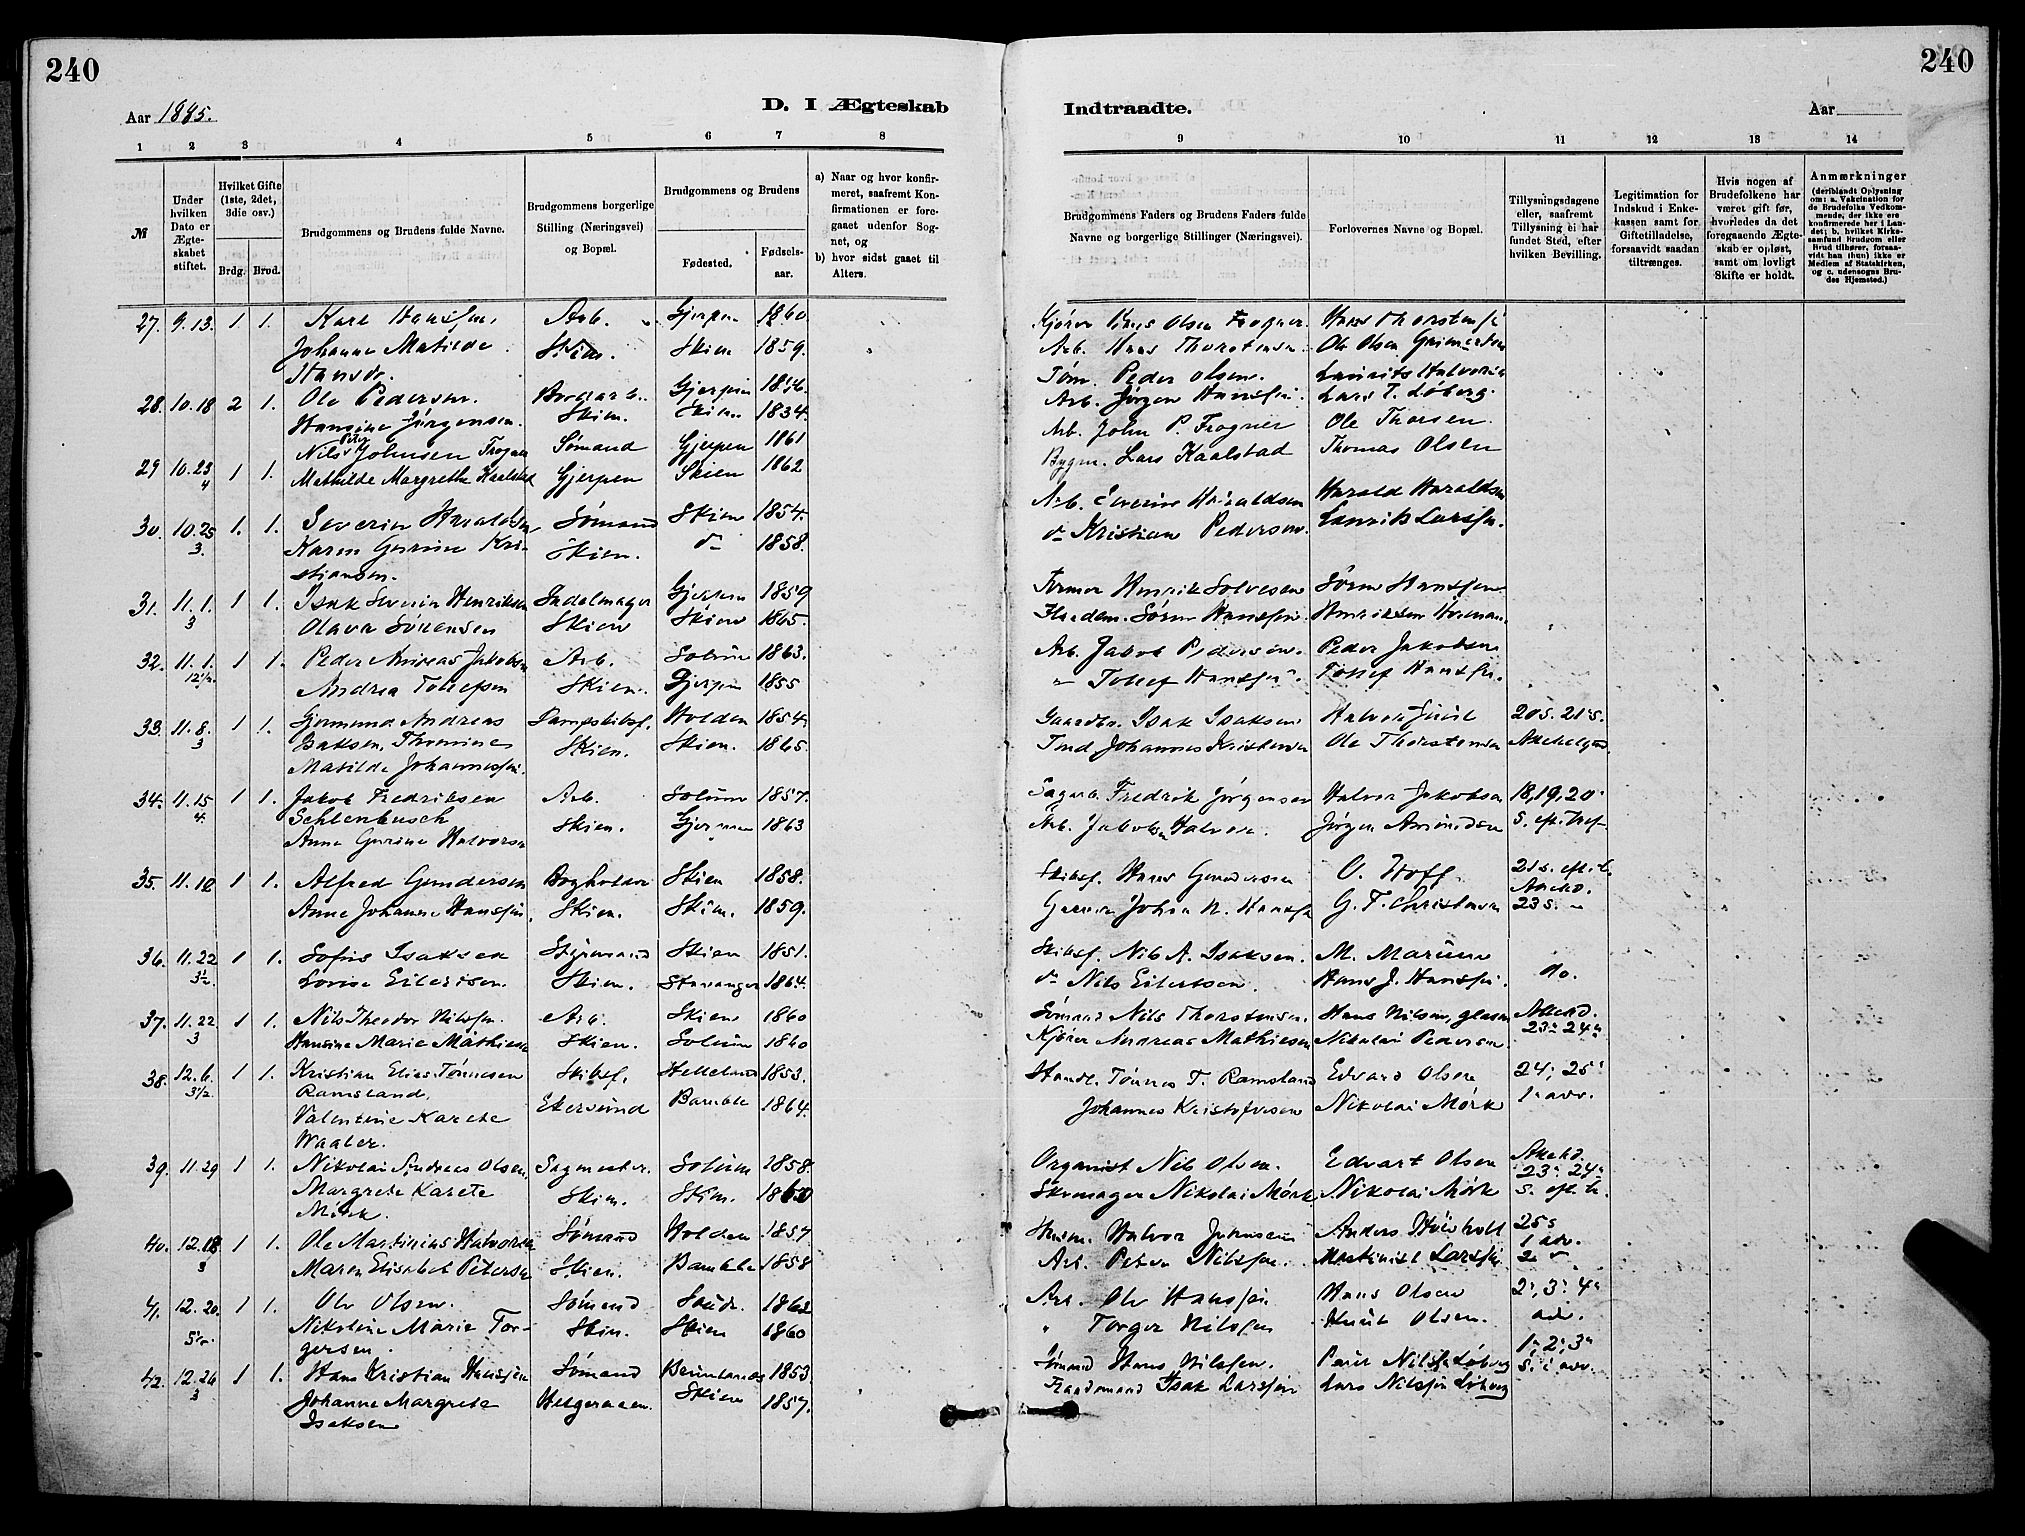 240
240
Aar 1885.
D. I Ægteskab
Indtraadte.
Aar
1 2 3 4 5 6 7 8
9 10 11 12 13 14
№
Under hvilken Dato er Ægteskabet stiftet.
Hvilket Gifte (1ste, 2det, 3die osv.)
Brdg. Brud.
Brudgommens og Brudens fulde Navne.
Brudgommens borgerlige Stilling (Næringsvei) og Bopæl.
Brudgommens og Brudens
Fødested.
Fødselsaar.
a) Naar og hvor konfirmeret, saafremt Konfirmationen er foregaaet udenfor Sognet, og
b) hvor sidst gaaet til Alters.
Brudgommens Faders og Brudens Faders fulde Navne og borgerlige Stillinger (Næringsvei).
Forlovernes Navne og Bopæl.
Tillysningsdagene eller, saafremt Tillysning ei har fundet Sted, efter hvilken Bevilling.
Legitimation for Indskud i Enkekassen samt for Giftetilladelse, forsaavidt saadan tiltrænges.
Hvis nogen af Brudefolkene har været gift før, hvorledes da det foregaaende Ægteskab er opløst, samt om lovligt Skifte er holdt.
Anmærkninger (deriblandt Oplysning om: a. Vakcination for de Brudefolks Vedkommende, der ikke ere konfirmerede her i Landet; b. hvilket Kirkesamfund Brudgom eller Brud tilhører, forsaavidt han (hun) ikke er Medlem af Statskirken, og c. udensogns Brudes Hjemsted.)
27. 9.13. 1 1. Karl Hansen, Arb. Gjerpen 1860. Kjører Olsen Frogner. Hans Thorstensen
Johanne Matilde Skien. Skien 1859. Arb. Hans Thorstensen Ole Olsen
Hansdr.
28. 10.18 2 1. Ole Pedersen. Gjerpen Tøm. Peder Olsen. Laurits Halvorsen
Hansine Jørgensen. Skien. Skien 1834. Arb. Jørgen Hansen. Lars T. Løberg.
29 10.23 1 1. Nils Johnsen Frogner Sømand Gjerpen 1861 Arb. John P. Frogner Ole Thorsen.
4 Mathilde Margrethe Kaalstad Gjerpen Skien 1862 Bygm. Lars Kaalstad Thomas Olsen
30. 10.25 1. 1. Severin Haraldsen Sømand Skien 1854. Arb. Haraldsen Harald Haraldsen
3. Karen Gurine Kri- Skien. do 1858. do Kristian Pedersen. Laurits Larssen.
stiansen.
31. 11.1. 1 1. Isak Severin Henriksen Sadelmager Gjerpen 1859 Henrik Solvesen Søren Hanssen
3 Olava Sörensen Skien Skien 1865. Søren Hanssen. Henriksen
32. 11.1. 1 1. Peder Andreas Jakobsen Arb. Solum 1863. Arb. Jakob Pedersen. Peder Jakobsen
12½. Andrea Tollefsen Skien. Gjerpen 1855 " Tollef Hanssen. Tollef Hanssen.
33. 11.8. 1 1. Gjermund Andreas Dampskibsf. Holden 1854. Gaardbr. Isak Isaksen Halvor Juul 20s. 21s.
3 Isaksen, Thomine Skien. Skien. 1865. Johannes Kristensen Ole Thorstensen
Matilde Johannessen.
34. 11.15 1 1. Jakob Fredriksen Arb. Solum 1857. Sagarb. Fredrik Jørgensen Halvor Jakobsen 18, 19, 20
4. Sehlenbusch Skien. Gjerpen 1863 Arb. Jakobsen Halvor. Jørgen Amundsen s. eft. Tref.
Anne Gurine Halvorsen
35. 11.18 1 1. Alfred Gundersen Bogholder Skien 1858. Skibsf. Hans Gundersen O. Hoff. 21s. eft. t.
Anne Johanne Hanssen. Skien. Skien. 1859. Garver Johan N. Hanssen G. T. Christensen 23s. "
36. 11.22 1 1. Sofus Isaksen Styrmand Skien 1851. Skibsf. Nils A. Isaksen. M.
3½. Lovise Eilertsen. Skien. Stavanger 1864. do Nils Eilertsen. Hans J. Hanssen. do.
37. 11.22 1 1. Nils Theodor Nilssen. Arb. Skien 1860 Sømand Nils Thorstensen. Hans Nilsen,
3 Hansine Marie Mathiesen Skien. Solum 1860 Kjører Andreas Mathiesen Nikolai Pedersen 23s 24s
38. 12.6. 1 1. Kristian Elias Tønnesen Skibsf. Helleland 1853. Handl. Tønnes T. Ramsland Edvard Olsen 24s 25s
3½. Ramsland, Ekersund Bamble 1864. Johannes Kristofersen Nikolai Mørk 1s adv.
Valentine Karete
Waaler.
39. 11.29 1 1. Nikolai Andreas Olsen Sagmester. Solum 1858. Organist Nils Olsen. Edvart Olsen 23s 24s
Margrete Karete Skien. Skien. 1860 Skomager Nikolai Mørk Nikolai Mørk s. eft. tr.
Mörk.
40. 12.18 1 1. Ole Martinius Halvorsen Sømand Holden 1857 Husm. Halvor Johnsen Anders 25s
3 Maren Elisabet Petersen Skien. Bamble 1858 Arb. Peter Nilssen. Larssen 1 adv. 2
41. 12.20. 1 1. Ole Olsen. Sømand Saude. 1862 Arb. Ole Hanssen Hans Olsen 2s, 3s 4s
5½. Nikoline Marie Tor- Skien. Skien 1860 " Torger Nilssen Knut Olsen. adv.
gersen.
42. 12.26 1 1. Hans Kristian Hanssen Sømand Brunlanæs 1853. Sømand Hans Nilssen. Paul Nilssen Løberg 1s, 2s, 3s
3 Johanne Margrete Helgeraaen. Skien 1857. Flaademand Isak Larssen Lars Nilssen Løberg s. i adv.
Isaksen